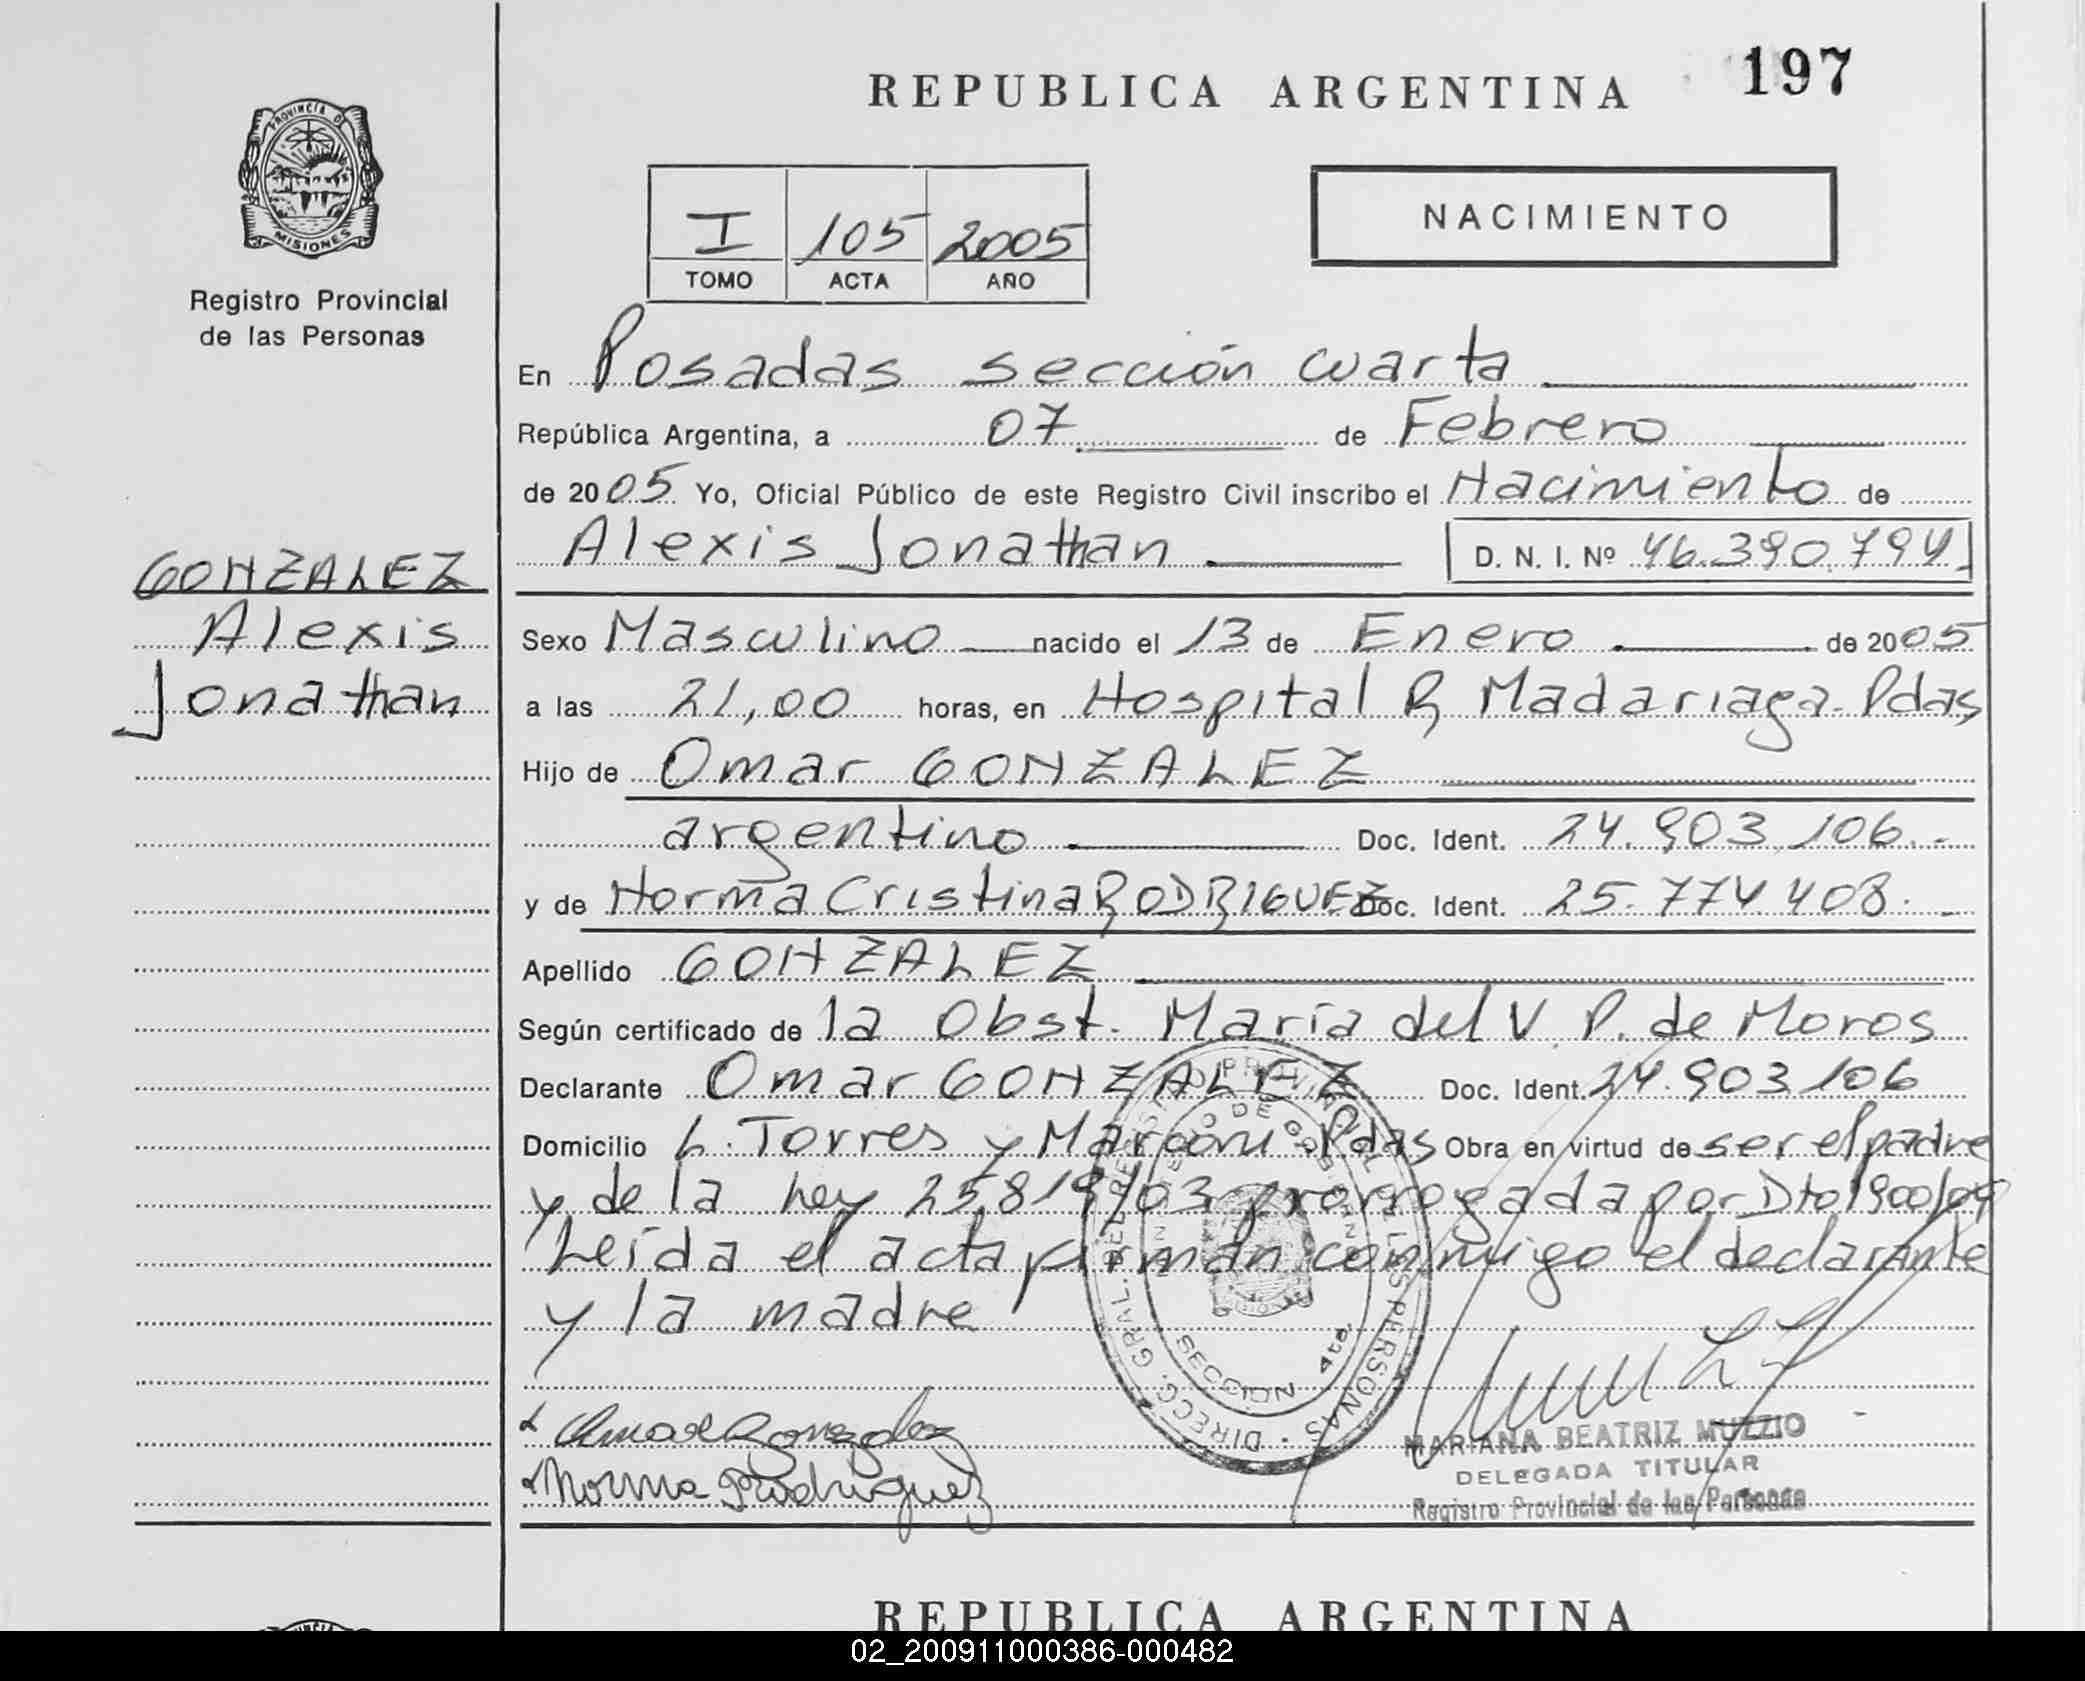 REPUBLICA ARGENTINA 197
PROVINCIA DE
MISIONES
Registro Provincial
de las Personas
I 105 2005
TOMO ACTA AÑO
NACIMIENTO
En Posadas sección cuarta
República Argentina, a 07 de Febrero
de 2005 Yo, Oficial Público de este Registro Civil inscribo el Nacimiento de
Alexis Jonathan D. N. I. Nº 46.390.794
GONZALEZ
Alexis
Jonathan
Sexo Masculino nacido el 13 de Enero de 2005
a las 21,00 horas, en Hospital R Madariaga - Pdas
Hijo de Omar GONZALEZ
argentino Doc. Ident. 24.903.106.-
y de Norma Cristina RODRIGUEZ Doc. Ident. 25.774.408.-
Apellido GONZALEZ
Según certificado de la Obst. María del V. P. de Moros
Declarante Omar GONZALEZ Doc. Ident. 24.903.106
Domicilio L. Torres y Marconi Pdas Obra en virtud de ser el padre
y de la Ley 25.819/03 prorrogada por Dto 1900/04
Leída el acta firman conmigo el declarante
y la madre
DIRECC. GRAL. DEL REGISTRO PROVINCIAL DE LAS PERSONAS
MINISTERIO DE GOBIERNO
SECCION 4ta.
Omar Gonzalez
Norma Rodriguez
MARIANA BEATRIZ MUZZIO
DELEGADA TITULAR
Registro Provincial de las Personas
REPUBLICA ARGENTINA
02_200911000386-000482